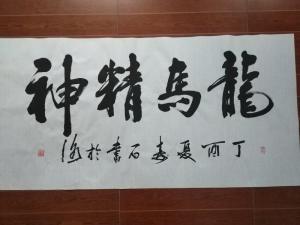 龍馬精神
丁酉夏石書於